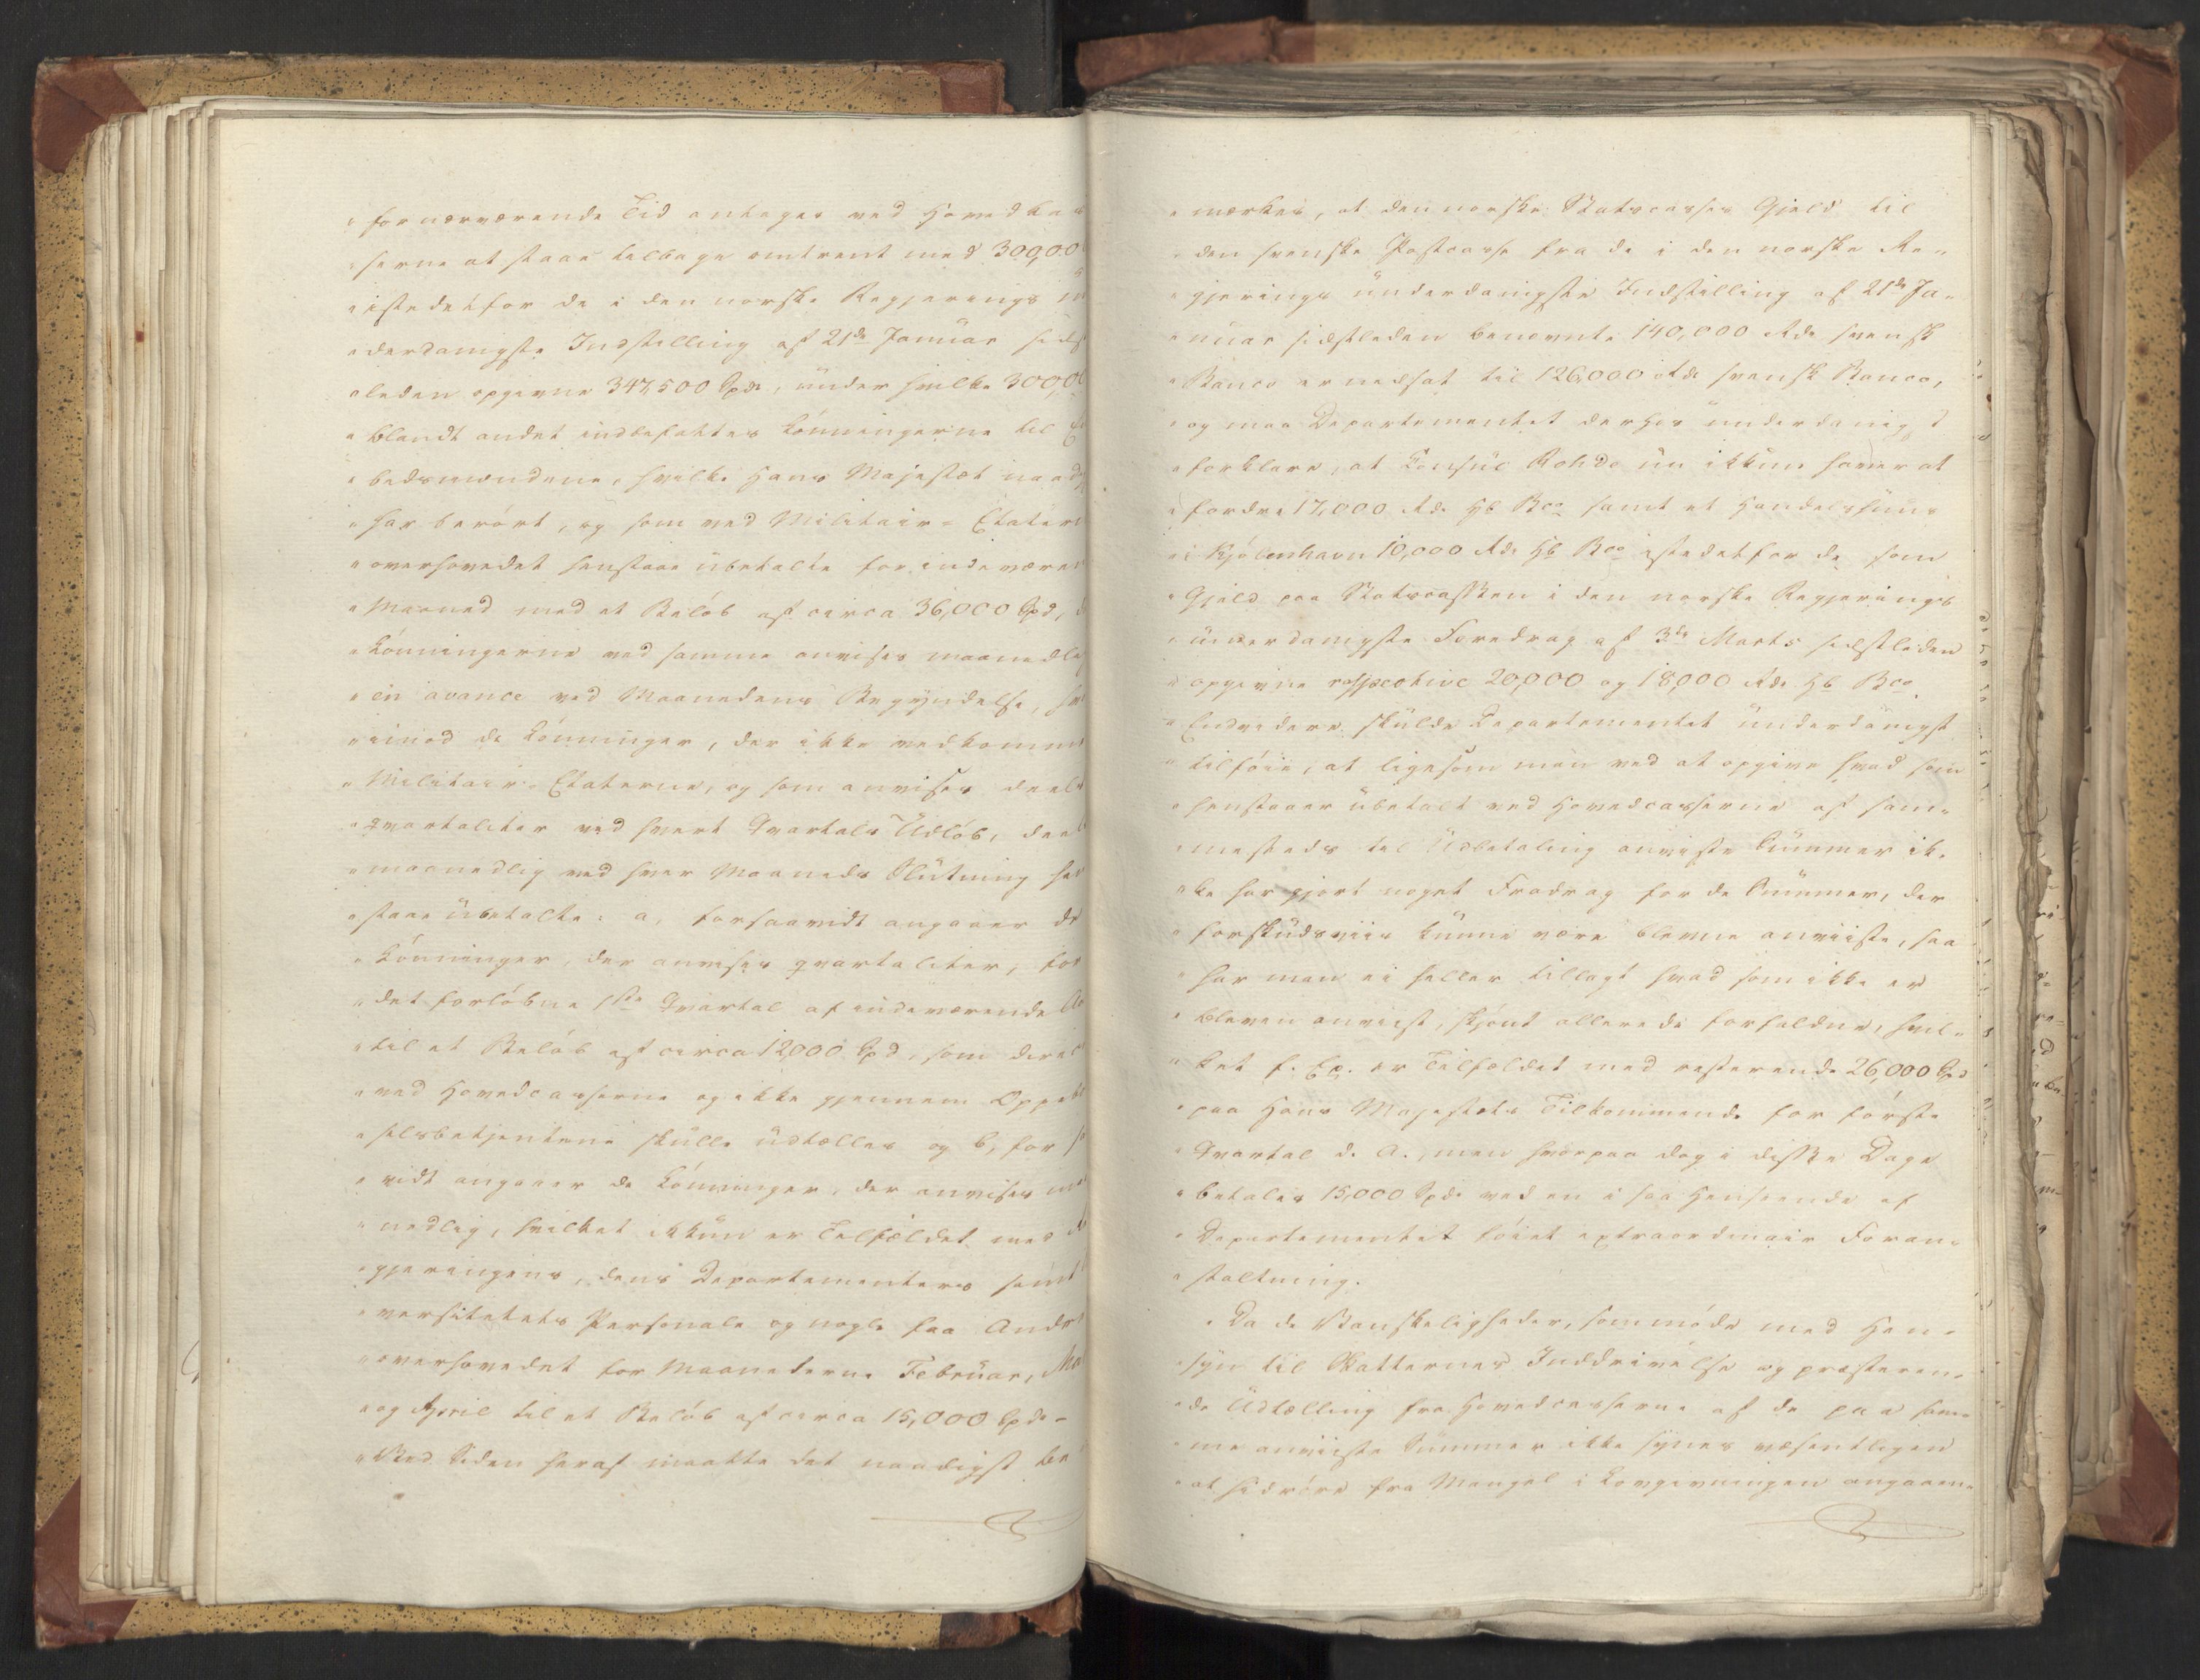 " for nærværende Tid antages ved Hovedkas
" serne at staae tilbage omtrent med 300,00
" istedetfor de i den norske Regjerings un
" derdanigste Indstilling af 21de Januar sidst
" leden opgivne 347,500 Spd, under hvilke 300,00
" blandt andet indbefattes Lønningerne til E
" bedsmændene, hvilke Hans Majestæt naad
" har berørt, og som ved Militair-Etatern
" overhovedet henstaae ubetalte for indeværen
" Maaned med et Beløb af circa 36,000 Spd,
" Lønningerne ved samme anvises maanedlig
" en avance ved Maanedens Begyndelse, hvo
" imod de Lønninger, der ikke vedkomme
" Militair-Etaterne, og som anvises deels
" qvartaliter ved hvert Qvartals Udløb, deels
" maanedlig ved hver Maaneds Slutning hen
" staae ubetalte: a, forsaavidt angaaer de
" Lønninger, der anvises qvartaliter, for
" det forløbne 1ste Qvartal af indeværende Aa
" til et Beløb af circa 12000 Spd, som direct
" ved Hovedcasserne og ikke gjennem Oppebør
" selsbetjentene skulle udtælles og b, for sa
" vidt angaaer de Lønninger, der anvises maa
" nedlig, hvilket ikkun er Tilfældet med Re
" gjeringens, dens Departementers samt
" versitetets Personale og nogle faa Andre
" overhovedet for Maanederne Februar, Mar
" og April til et Beløb af circa 15,000 Spd-
" Ved Siden heraf maatte det naadigst be
" mærkes, at den norske Statscasses Gjeld til
" den svenske Postcasse fra de i den norske Re-
" gjerings underdanigste Indstilling af 21de Ja-
" nuar sidstleden benævnte 140,000 Rdr svensk
" Banco er nedsat til 126,000 Rdr svensk Banco,
" og maa Departementet derhos underdanigst
" forklare, at Consul Rohde nu ikkun haver at
" fordre 17,000 Rdr Hb Bco samt et Handelshuus
" i Kjøbenhavn 10,000 Rdr Hb Bco istedetfor de som
" Gjeld paa Statscassen i den norske Regjerings
" underdanigste Foredrag af 3de Marts sidstleden
" opgivne respective 20,000 og 18,000 Rdr Hb Bco.
" Endvidere skulde Departementet underdanigst
" tilføie, at ligesom man ved at opgive hvad som
" henstaaer ubetalt ved Hovedcasserne af sam-
" mesteds til Udbetaling anviste Summer ik-
" ke har gjort noget Fradrag for de Summer, der
" forskudsviis kunne være blevne anviiste, saa
" har man ei heller tillagt hvad som ikke er
" bleven anviist, skjønt allerede forfalden, hvil-
" ket f. Ex. er Tilfældet med resterende 26,000 Spd
" paa Hans Majestæts Tilkommende for første
" Qvartal d. A., men hvorpaa dog i disse Dage
" betales 15,000 Spd ved en i saa Henseende af
" Departementet føiet extraordinair Foran-
" staltning.
" Da de Vanskeligheder, som møde med Hen-
" syn til Skatternes Inddrivelse og præsteren-
" de Udtælling fra Hovedcasserne af de paa sam-
" me anviiste Summer ikke synes væsentligen
" at hidrøre fra Mangel i Lovgivningen angaaen-